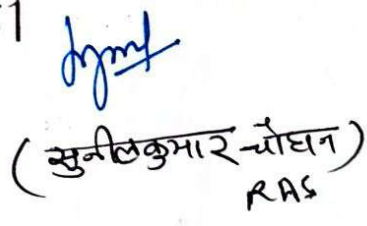 1
(सुनील कुमार चौहान)
RAS